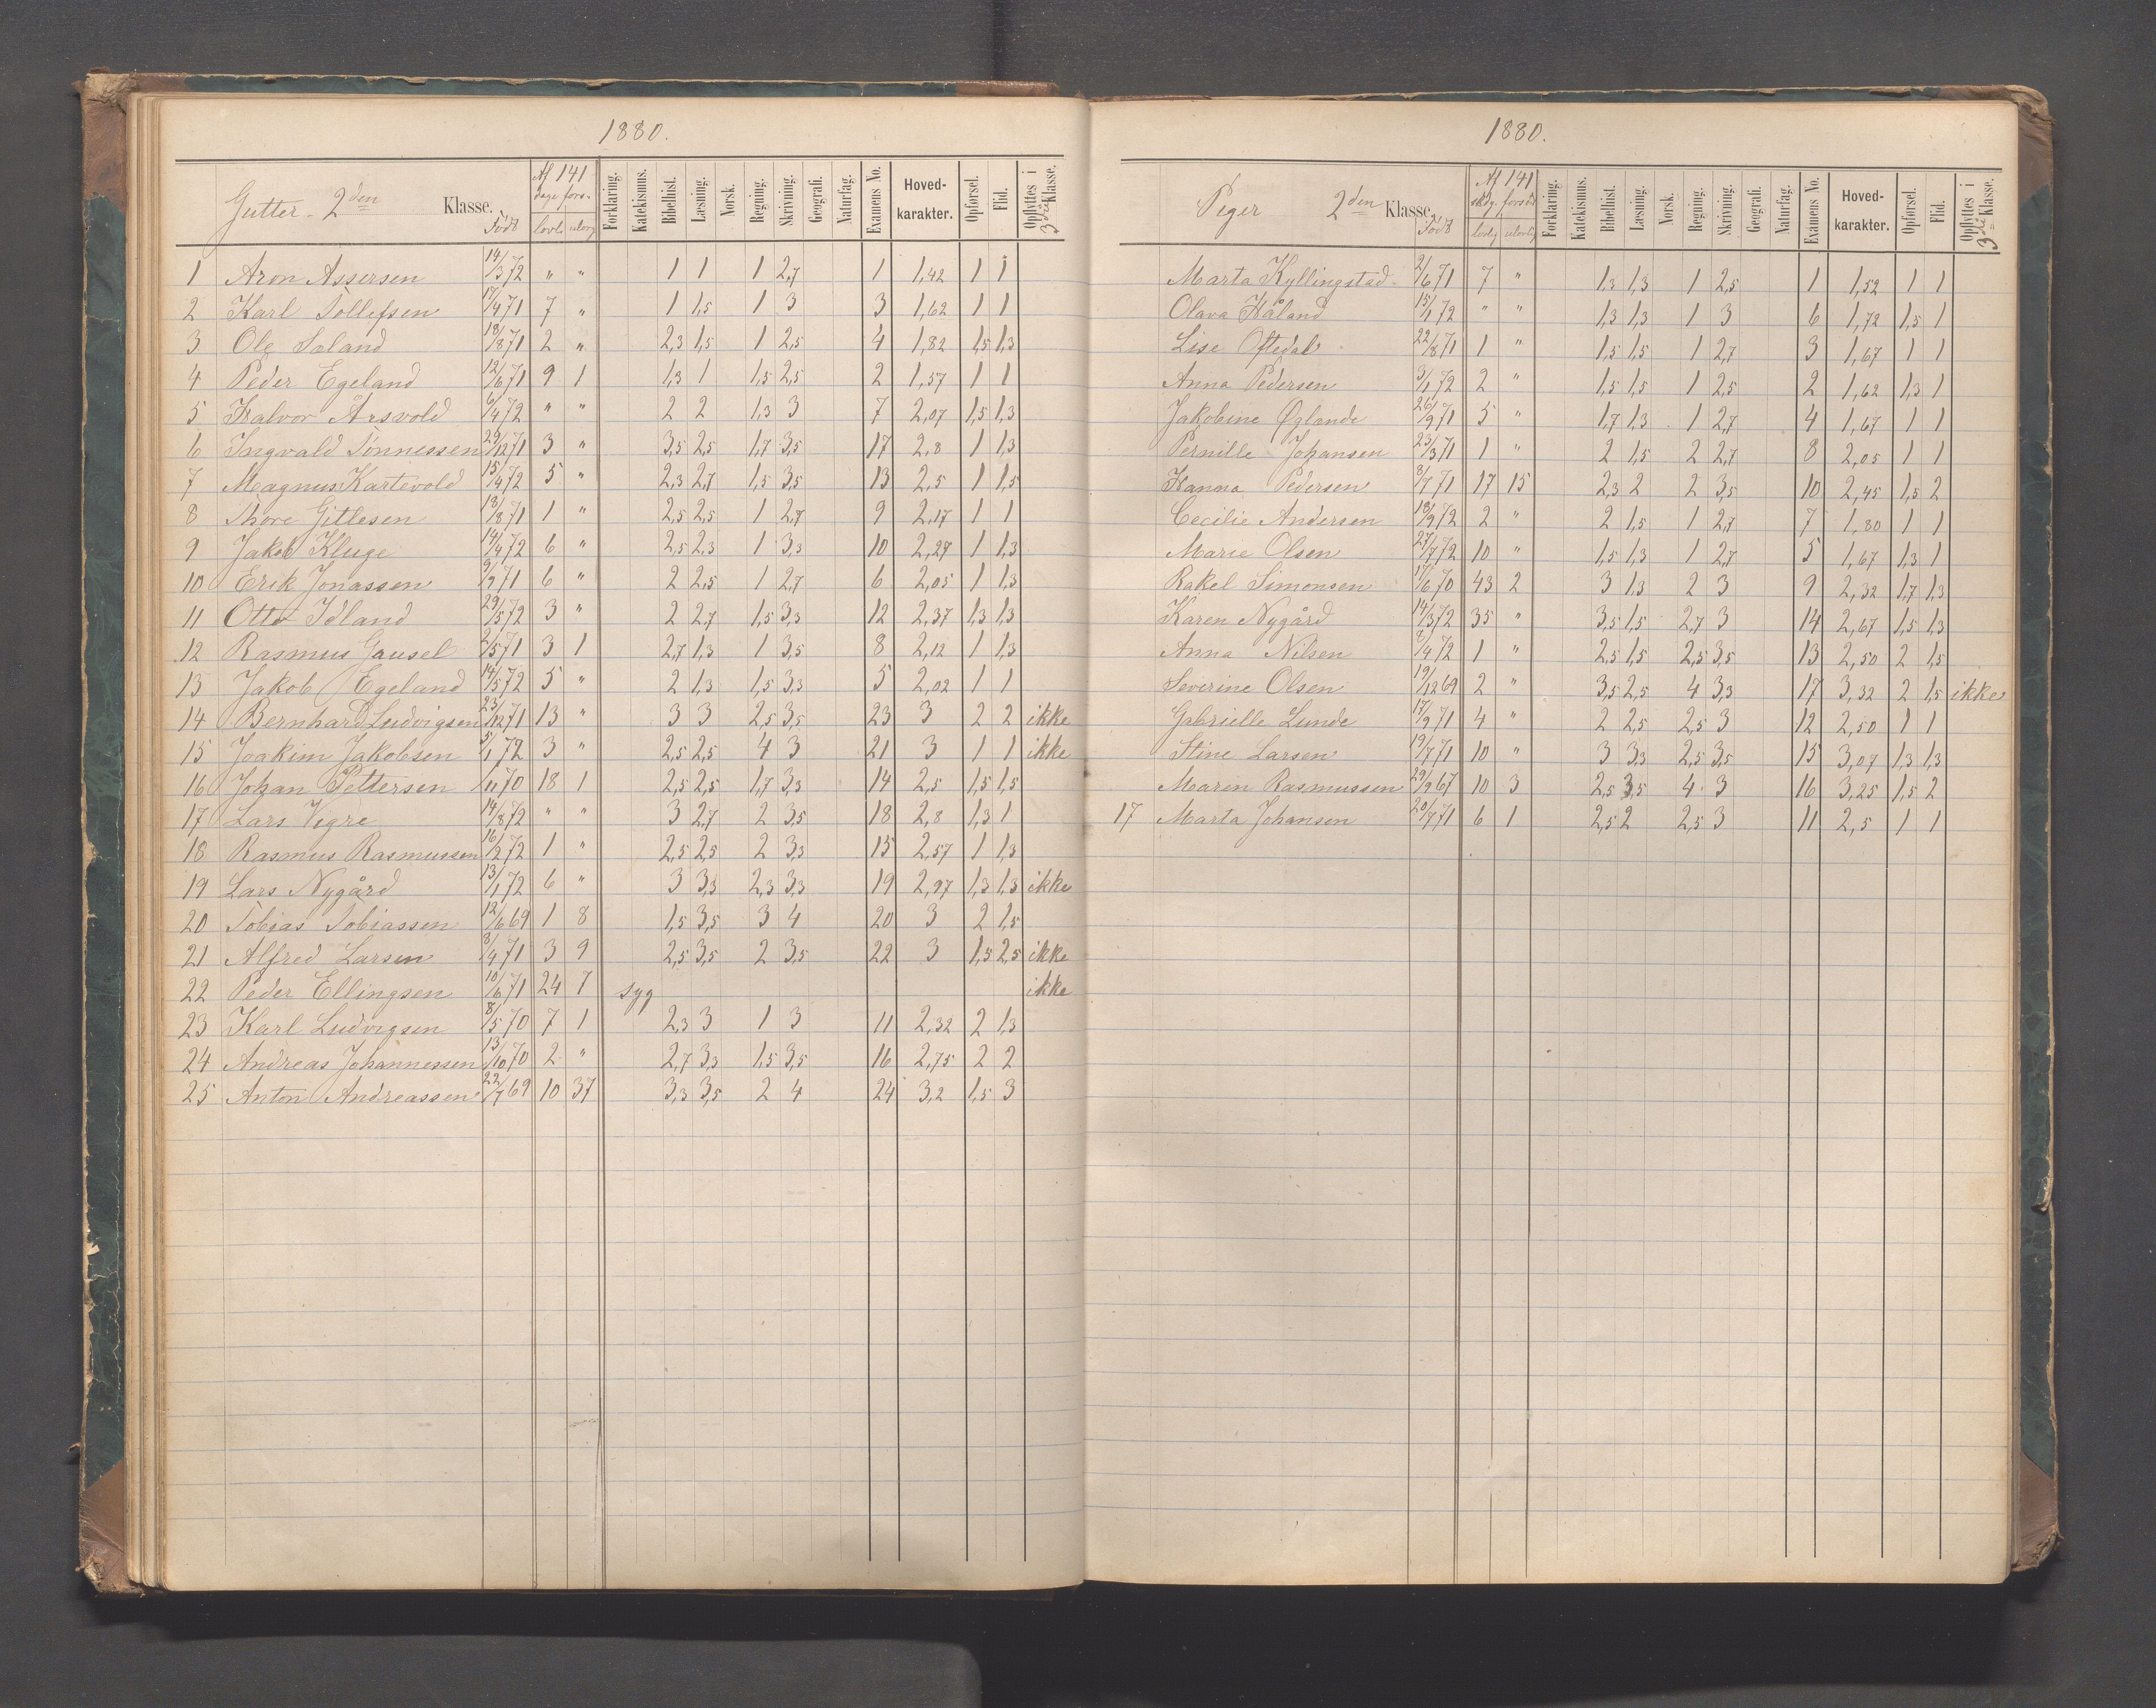 1880.
Gutter. 2den Klasse. Født Af 141 dage fors. lovl. ulovl. Forklaring. Katekismus. Bibelhist. Læsning. Norsk. Regning. Skrivning. Geografi. Naturfag. Examens No. Hoved-karakter. Opførsel. Flid. Opflyttes i 3die Klasse.
1 Aron Assersen 14/3 72 " " 1 1 1 2,7 1 1,42 1 1
2 Karl Tollefsen 17/4 71 7 " 1 1,5 1 3 3 1,62 1 1
3 Ole Soland 18/8 71 2 " 2,3 1,5 1 2,5 4 1,82 1,5 1,3
4 Peder Egeland 12/6 71 9 1 1,3 1 1,5 2,5 2 1,57 1 1
5 Halvor Årsvold 6/4 72 " " 2 2 1,3 3 7 2,07 1,5 1,3
6 Ingvald Tønnessen 29/12 71 3 " 3,5 2,5 1,7 3,5 17 2,8 1 1,3
7 Magnus Kartevold 15/4 72 5 " 2,3 2,7 1,5 3,5 13 2,5 1 1,5
8 Thore Gitlesen 13/8 71 1 " 2,5 2,5 1 2,7 9 2,17 1 1
9 Jakob Kluge 14/4 72 6 " 2,5 2,3 1 3,3 10 2,27 1 1,3
10 Erik Jonassen 9/9 71 6 " 2 2,5 1 2,7 6 2,05 1 1,3
11 Otto Idland 29/5 72 3 " 2 2,7 1,5 3,3 12 2,37 1,3 1,3
12 Rasmus Gausel 2/5 71 3 1 2,7 1,3 1 3,5 8 2,12 1 1,3
13 Jakob Egeland 14/5 72 5 " 2 1,3 1,5 3,3 5 2,02 1 1
14 Bernhard Ludvigsen 23/12 71 13 " 3 3 2,5 3,5 23 3 2 2 ikke
15 Joakim Jakobsen 5/1 72 3 " 2,5 2,5 4 3 21 3 1 1 ikke
16 Johan Pettersen /11 70 18 1 2,5 2,5 1,7 3,3 14 2,5 1,5 1,5
17 Lars Vigre 14/8 72 " " 3 2,7 2 3,5 18 2,8 1,3 1
18 Rasmus Rasmussen 16/2 72 1 " 2,5 2,5 2 3,3 15 2,57 1 1,3
19 Lars Nygård 13/1 72 6 " 3 3,3 2,3 3,3 19 2,97 1,3 1,3 ikke
20 Tobias Tobiassen 12/6 69 1 8 1,5 3,5 3 4 20 3 2 1,5
21 Alfred Larsen 8/4 71 3 9 2,5 3,5 2 3,5 22 3 1,5 2,5 ikke
22 Peder Ellingsen 10/6 71 24 7 syg ikke
23 Karl Ludvigsen 8/5 70 7 1 2,3 3 1 3 11 2,32 2 1,3
24 Andreas Johannessen 13/10 70 2 " 2,7 3,3 1,5 3,5 16 2,75 2 2
25 Anton Andreassen 22/7 69 10 37 3,3 3,5 2 4 24 3,2 1,5 3
1880.
Piger 2den Klasse. Født Af 141 skdg. forsømt lovlig ulovlig Forklaring. Katekismus. Bibelhist. Læsning. Norsk. Regning. Skrivning. Geografi. Naturfag. Examens No. Hoved-karakter. Opførsel. Flid. Opflyttes i 3die Klasse.
Marta Kyllingstad 2/6 71 7 " 1,3 1,3 1 2,5 1 1,52 1 1
Olava Håland 15/1 72 " " 1,3 1,3 1 3 6 1,72 1,5 1
Lise Oftedal 22/8 71 1 " 1,5 1,5 1 2,7 3 1,67 1 1
Anna Pedersen 3/1 72 2 " 1,5 1,5 1 2,5 2 1,62 1,3 1
Jakobine Øglænde 26/9 71 5 " 1,7 1,3 1 2,7 4 1,67 1 1
Pernille Johansen 23/3 71 1 " 2 1,5 2 2,7 8 2,05 1 1
Hanna Pedersen 8/7 71 17 15 2,3 2 2 3,5 10 2,45 1,5 2
Cecilie Andersen 18/9 72 2 " 2 1,5 1 2,7 7 1,80 1 1
Marie Olsen 27/7 72 10 " 1,5 1,3 1 2,7 5 1,67 1,3 1
Rakel Simonsen 17/6 70 43 2 3 1,3 2 3 9 2,32 1,7 1,3
Karen Nygård 14/3 72 35 " 3,5 1,5 2,7 3 14 2,67 1,5 1,3
Anna Nilsen 8/4 72 1 " 2,5 1,5 2,5 3,5 13 2,50 2 1,5
Severine Olsen 19/12 69 2 " 3,5 2,5 4 3,3 17 3,32 2 1,5 ikke
Gabrielle Lunde 17/9 71 4 " 2 2,5 2,5 3 12 2,50 1 1
Stine Larsen 19/7 71 10 " 3 3,3 2,5 3,5 15 3,07 1,3 1,3
Maren Rasmussen 29/9 67 10 3 2,5 3,5 4 3 16 3,25 1,5 2
17 Marta Johansen 20/7 71 6 1 2,5 2 2,5 3 11 2,5 1 1